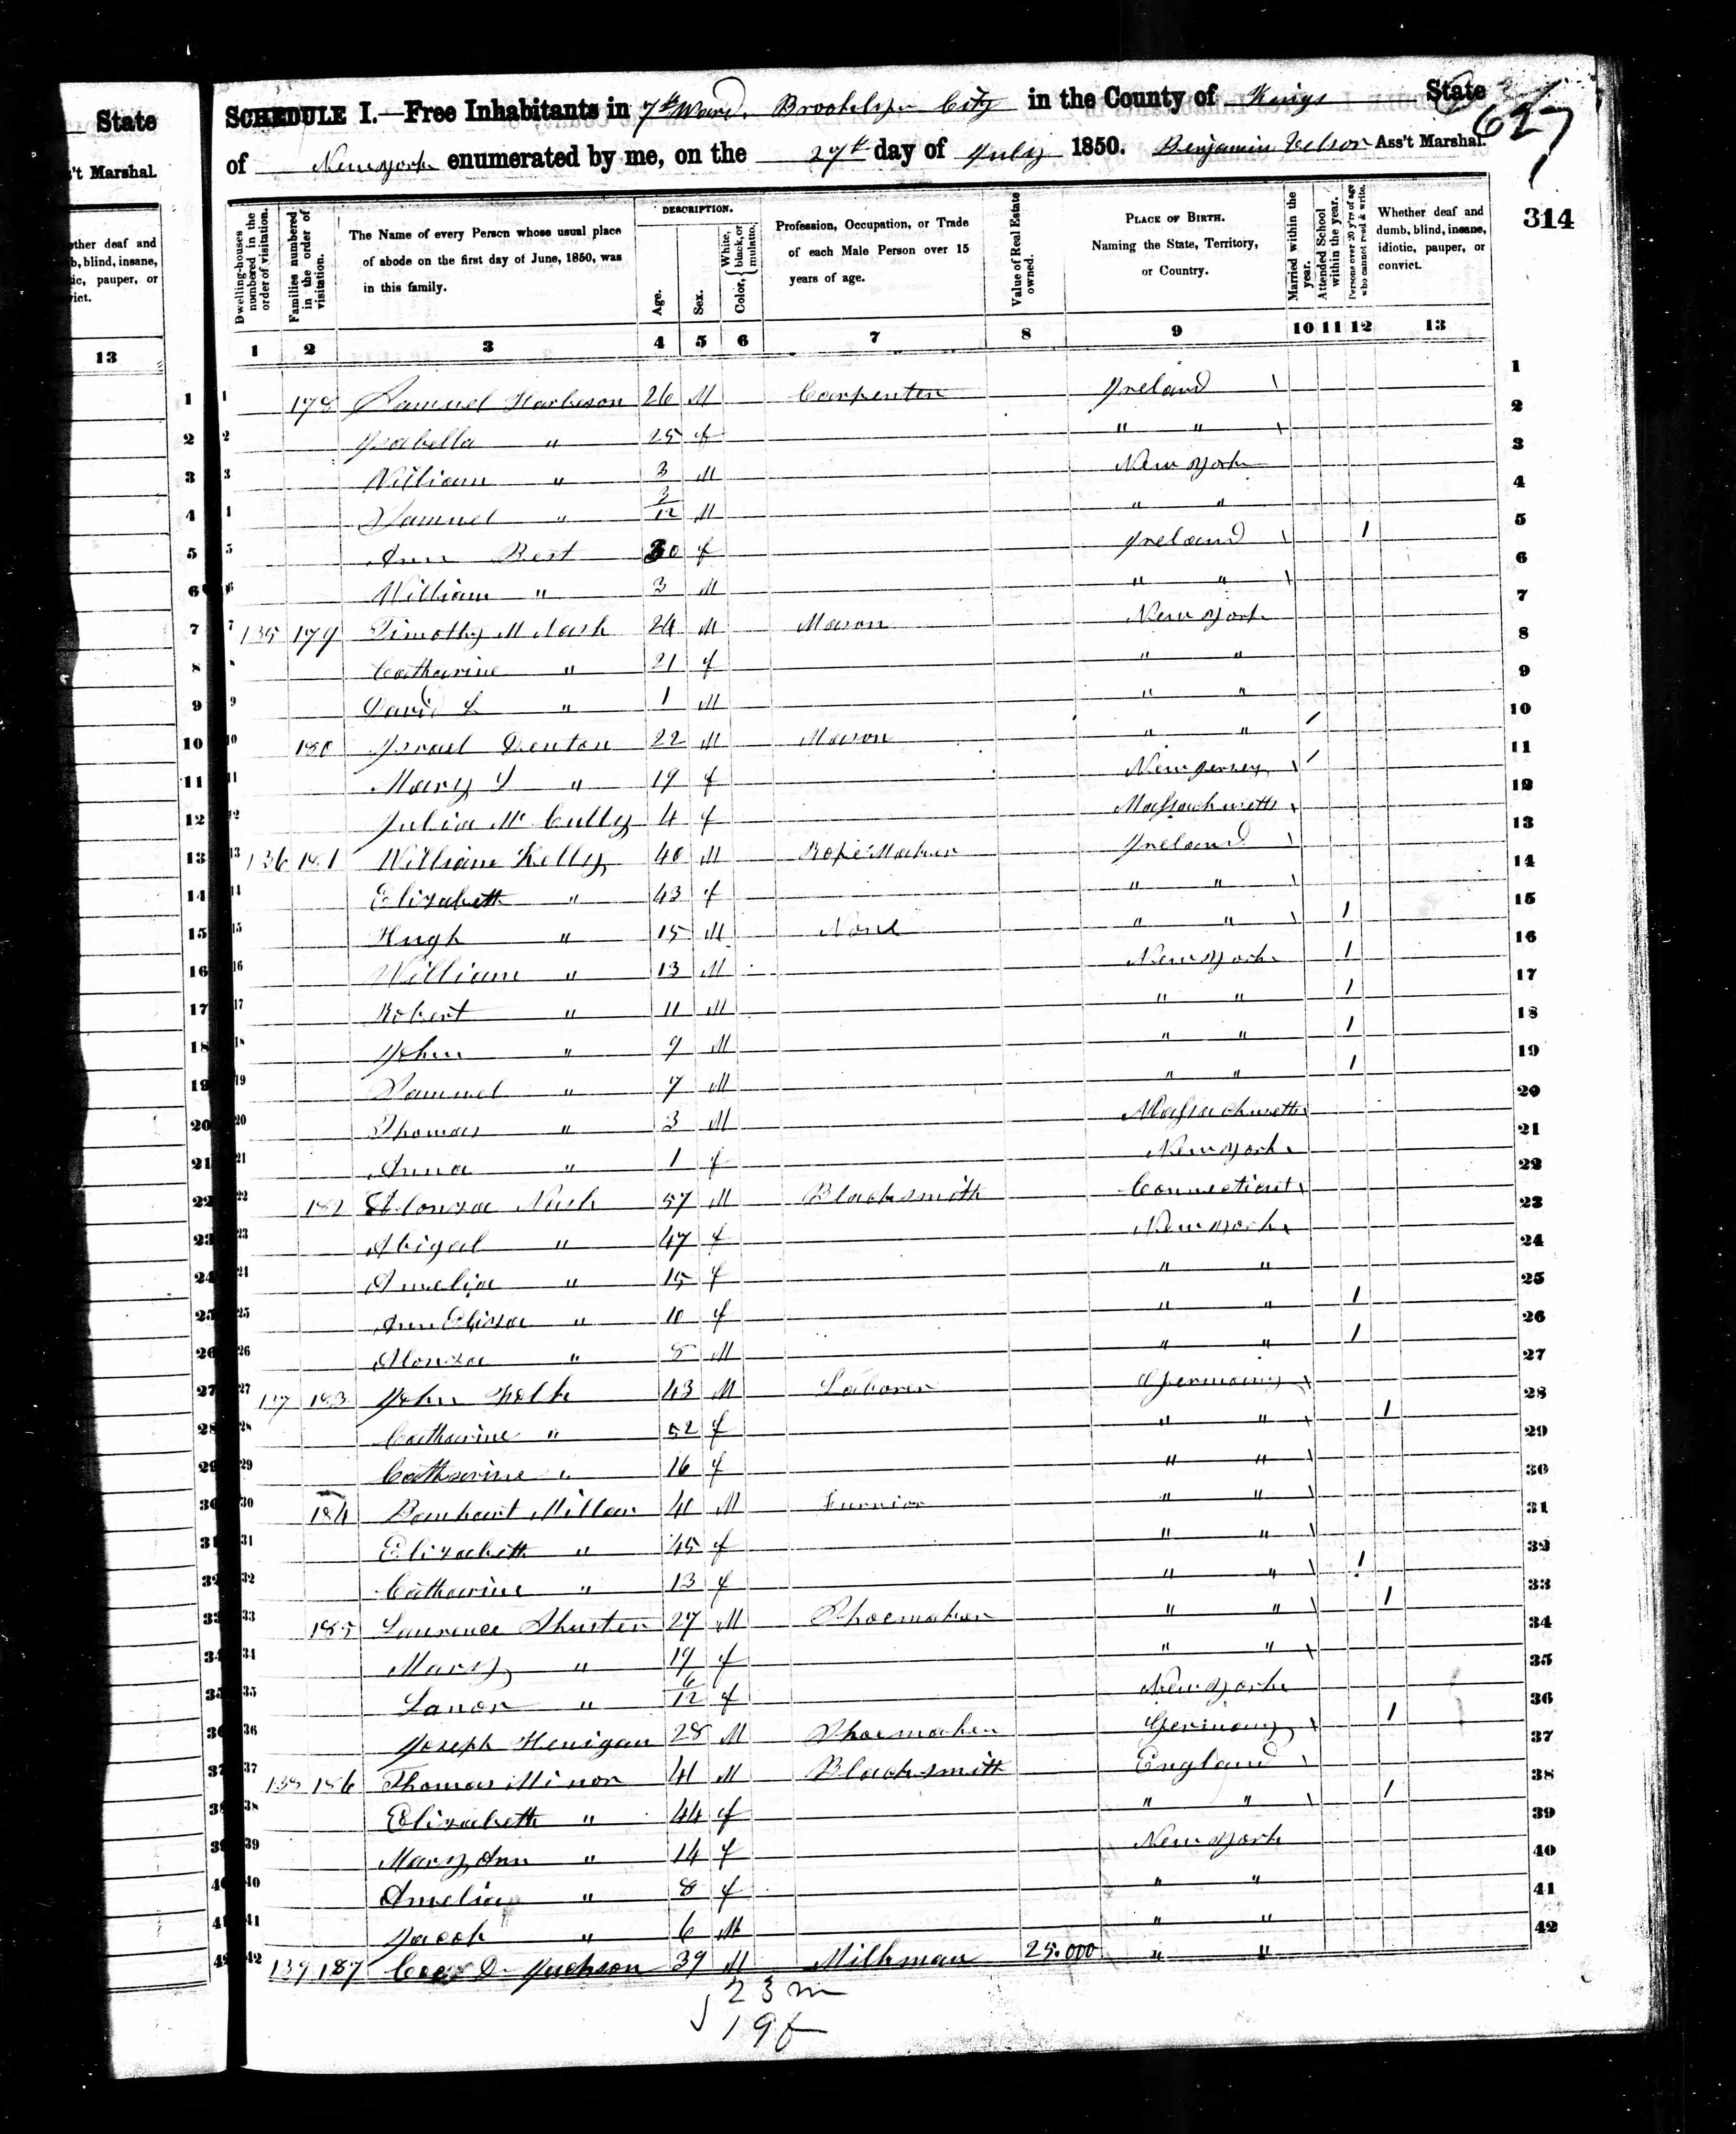 State
't Marshal.
ther deaf and
b, blind, insane,
ic, pauper, or
ict.
13
SCHEDULE I.—Free Inhabitants in 7th Ward, Brooklyn City in the County of Kings State
627
of New York enumerated by me, on the 27th day of July 1850. Benjamin Ass't Marshal.
314
Dwelling-houses numbered in the order of visitation.
Families numbered in the order of visitation.
The Name of every Person whose usual place of abode on the first day of June, 1850, was in this family.
DESCRIPTION.
Age.
Sex.
Color, { White, black, or mulatto.
Profession, Occupation, or Trade of each Male Person over 15 years of age.
Value of Real Estate owned.
PLACE OF BIRTH. Naming the State, Territory, or Country.
Married within the year.
Attended School within the year.
Persons over 20 y'rs of age who cannot read & write.
Whether deaf and dumb, blind, insane, idiotic, pauper, or convict.
1 2 3 4 5 6 7 8 9 10 11 12 13
1 178 Samuel Harbeson 26 M Carpenter Ireland \ 1
2 Isabella " 25 f " " \ 2
3 William " 3 M New York 3
4 Samuel " 3/12 M " " 4
5 Ann Best 30 f Ireland \ 1 5
6 William " 3 M " " \ 6
7 135 179 Timothy M Nash 24 M Mason New York 7
8 Catharine " 21 f " " 8
9 David L " 1 M " " 9
10 180 Israel Denton 22 M Mason " " / 10
11 Mary " 19 f New Jersey \ / 11
12 Julia Mc Cully 4 f Massachusetts 12
13 136 181 William Kelly 40 M Rope Maker Ireland \ 13
14 Elizabeth " 43 f " " \ 14
15 Hugh " 15 M None " " \ 1 15
16 William " 13 M New York 1 16
17 Robert " 11 M " " 1 17
18 John " 9 M " " 1 18
19 Samuel " 7 M " " 1 19
20 Thomas " 3 M Massachusetts 20
21 Anna " 1 f New York 21
22 182 Alonza Nash 57 M Blacksmith Connecticut 22
23 Abigal " 47 f New York 23
24 Amelia " 15 f " " 24
25 Ann Eliza " 10 f " " 1 25
26 Alonza " 8 M " " 1 26
27 137 183 John 43 M Laborer Germany \ 27
28 Catharine " 52 f " " \ 1 28
29 Catharine " 16 f " " \ 29
30 184 Barnhart Millar 41 M Furrier " " \ 30
31 Elizabeth " 45 f " " \ 31
32 Catharine " 13 f " " \ 1 32
33 185 Laurence Shuster 27 M Shoemaker " " \ 1 33
34 Mary " 19 f " " \ 34
35 Lanor " 6/12 f New York 35
36 Joseph Henigan 28 M Shoemaker Germany \ 1 36
37 138 186 Thomas Minor 41 M Blacksmith England \ 37
38 Elizabeth " 44 f " " \ 1 38
39 Mary Ann " 14 f New York 39
40 Amelia " 8 f " " 40
41 Jacob " 6 M " " 41
42 139 187 D. Jackson 39 M Milkman 25.000 " " 42
23 m
19 f